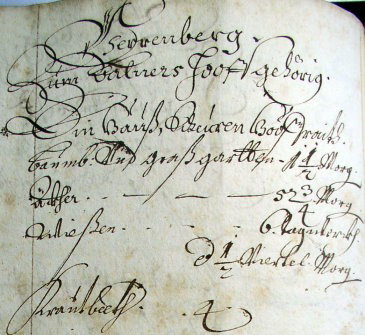 Herrenberg.
Zum Balners Hooff gehörig.
Ein Hauß, Scheüren, Hoff raith
baumb- Und graßgartten. 1 1/2 Morg.
Äkher. — — — 52 3/4 Morg
Wießen. 6. Tagwerkh.
1/2 Viertel. Morg.
Krautbeth. 4